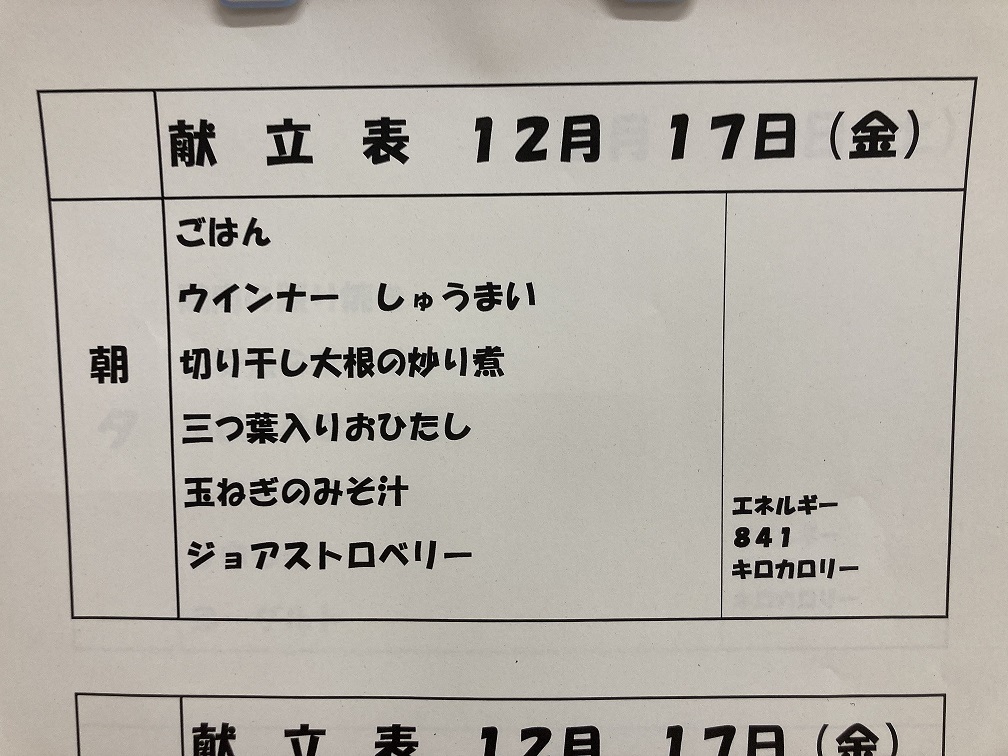 献立表 12月 17日(金)
朝
ごはん
ウインナー しゅうまい
切り干し大根の炒り煮
三つ葉入りおひたし
玉ねぎのみそ汁
ジョアストロベリー
エネルギー
841
キロカロリー
献立表 12月 17日(金)